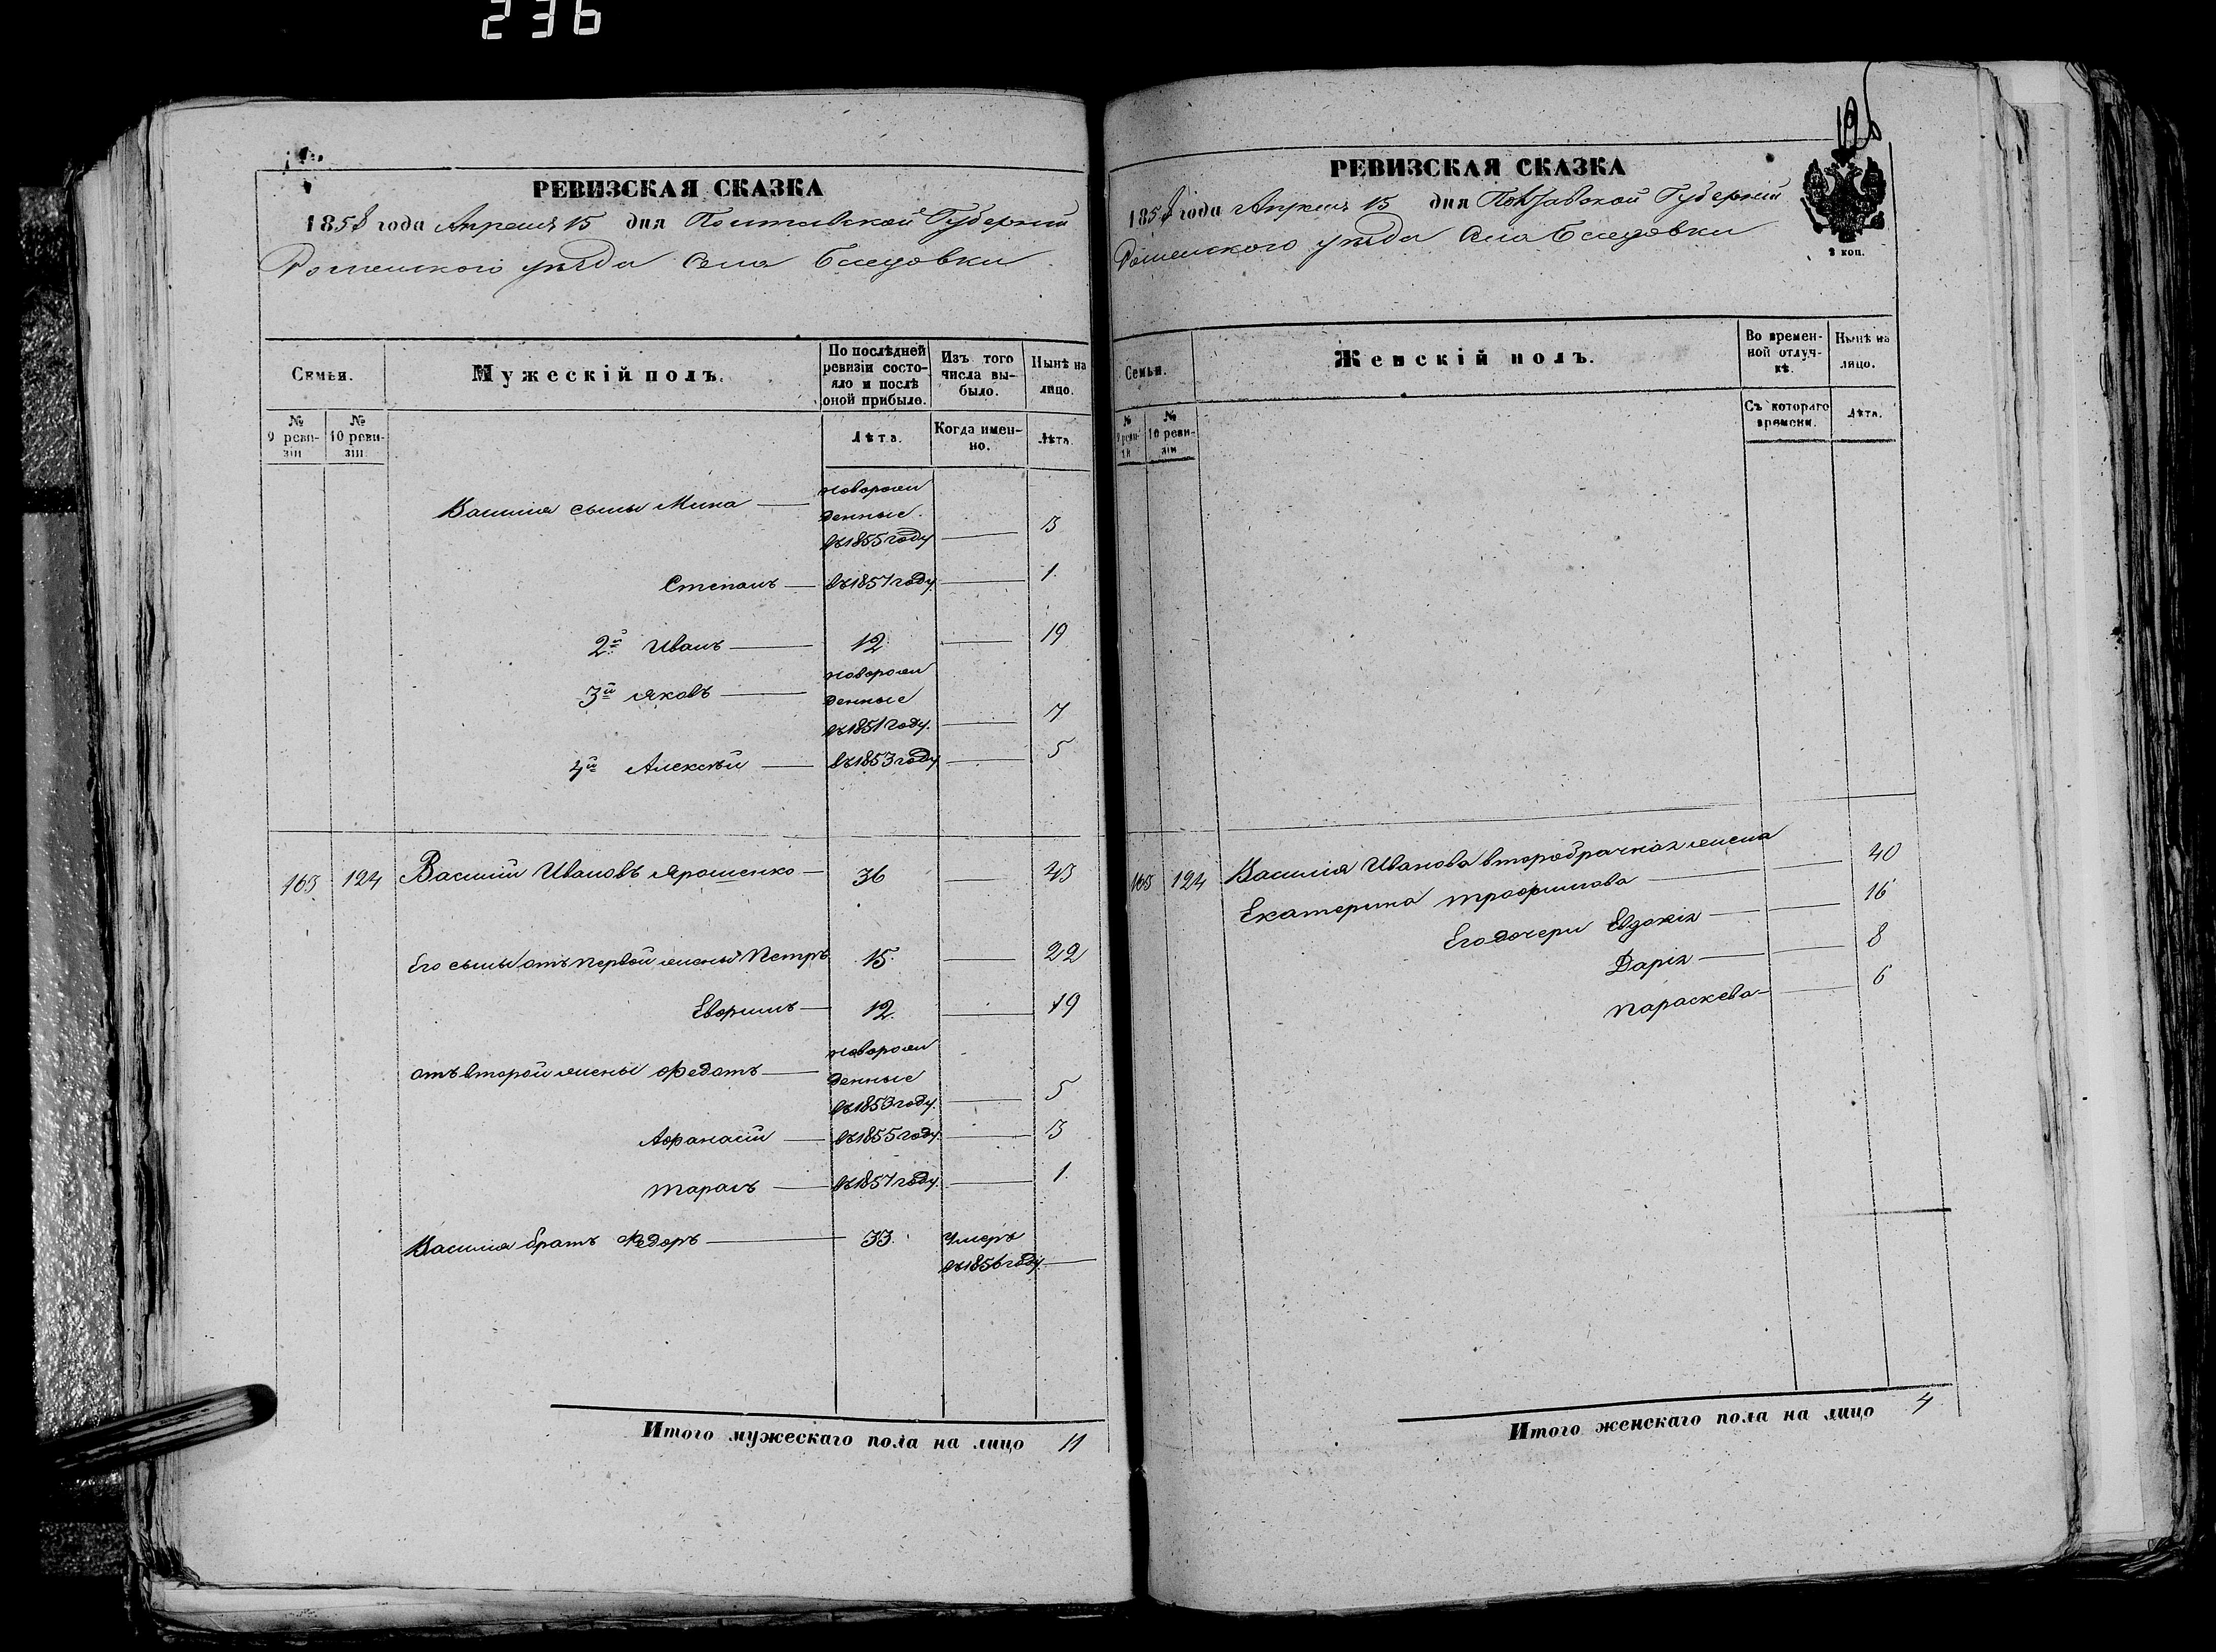 236
РЕВИЗСКАЯ СКАЗКА
1858 года Апреля 15 дня Полтавской Губерніи
Роменского уѣзда Села Беседовки
Семьи.
Мужескій полъ.
По послѣдней ревизіи состояло и послѣ оной прибыло.
Изъ того числа выбыло.
Нынѣ на лицо.
№ 9 ревизіи
№ 10 ревизіи
Лѣта.
Когда именно.
Лѣта.
новорож
Василія сыны Мина
денные
въ 1855 году 3
Степанъ въ 1857 году 1.
2й Иванъ 12. 19
новорож
3й Яковъ
денные
въ 1851 году. 7
4й Алексѣй въ 1853 году 5
165 124 Василій Ивановъ Ярошенко 36 43
Его сыны отъ первой жены Петръ 15. 22
Евфимъ 12. 19
новорож
отъ второй жены Федотъ
денные
въ 1853 году. 5
Афанасій въ 1855 году. 3
Тарасъ въ 1857 году. 1.
Василія братъ Федоръ 33. Умеръ
въ 1856 году.
Итого мужескаго пола на лицо 11
РЕВИЗСКАЯ СКАЗКА
1858 года Апреля 15 дня Полтавской Губерніи
Роменского уѣзда Села Беседовки
2 коп.
Семьи.
Женскій полъ.
Во временной отлучкѣ.
Нынѣ на лицо.
№ 9 ревизіи
№ 10 ревизіи
Съ котораго времени.
Лѣта.
165 124 Василія Иванова второбрачная жена
Екатерина Трофимова 40
Его дочери Евдокія 16
Дарія 8
Параскева 6
Итого женскаго пола на лицо 4